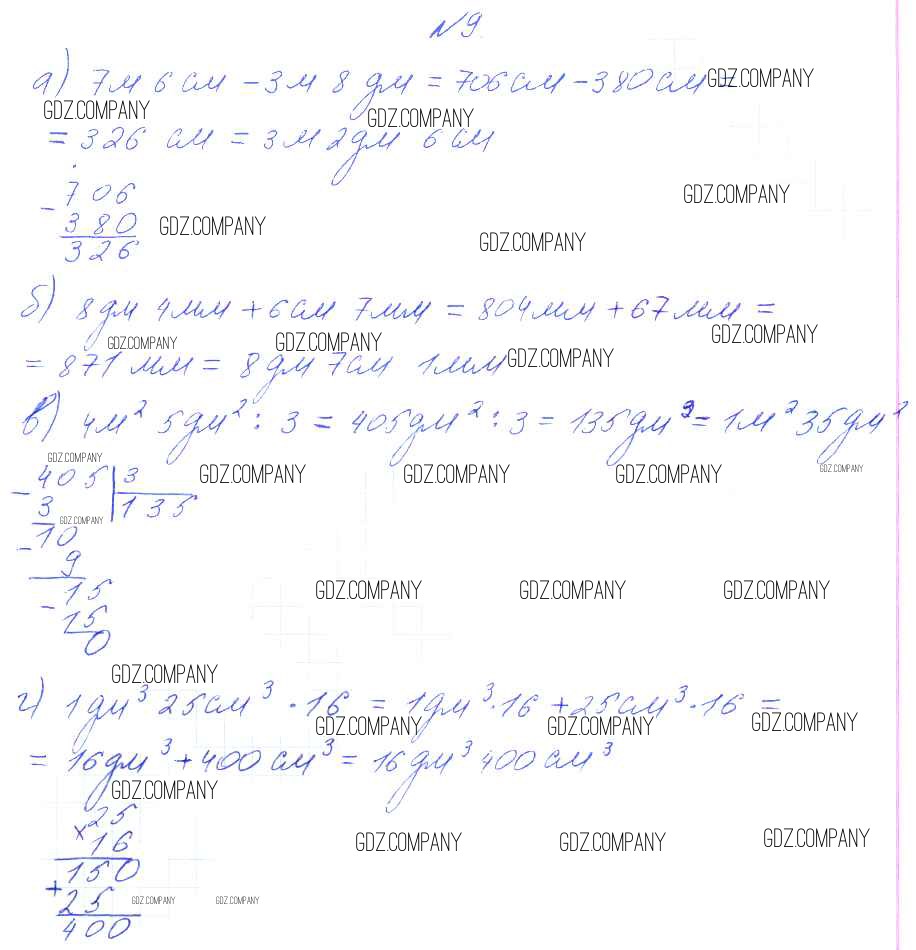 №9.
а) 7м 6 см - 3 м 8 дм = 706 см - 380 см =
GDZ.COMPANY
GDZ.COMPANY GDZ.COMPANY
= 326 см = 3 м 2 дм 6 см
- 706
GDZ.COMPANY
380 GDZ.COMPANY GDZ.COMPANY
326
б) 8 дм 4 мм + 6 см 7 мм = 804 мм + 67 мм =
GDZ.COMPANY GDZ.COMPANY GDZ.COMPANY
= 871 мм = 8 дм 7 см 1 мм GDZ.COMPANY
в) 4 м² 5 дм² : 3 = 405 дм² : 3 = 135 дм² = 1 м² 35 дм²
GDZ.COMPANY
- 405 | 3 GDZ.COMPANY GDZ.COMPANY GDZ.COMPANY GDZ.COMPANY
3 135
GDZ.COMPANY
- 10
9
- 15 GDZ.COMPANY GDZ.COMPANY GDZ.COMPANY
15
0
GDZ.COMPANY
г) 1 дм³ 25 см³ · 16 = 1 дм³ · 16 + 25 см³ · 16 =
GDZ.COMPANY GDZ.COMPANY GDZ.COMPANY
= 16 дм³ + 400 см³ = 16 дм³ 400 см³
GDZ.COMPANY
× 25
16 GDZ.COMPANY GDZ.COMPANY GDZ.COMPANY
150
+ 25 GDZ.COMPANY GDZ.COMPANY
400